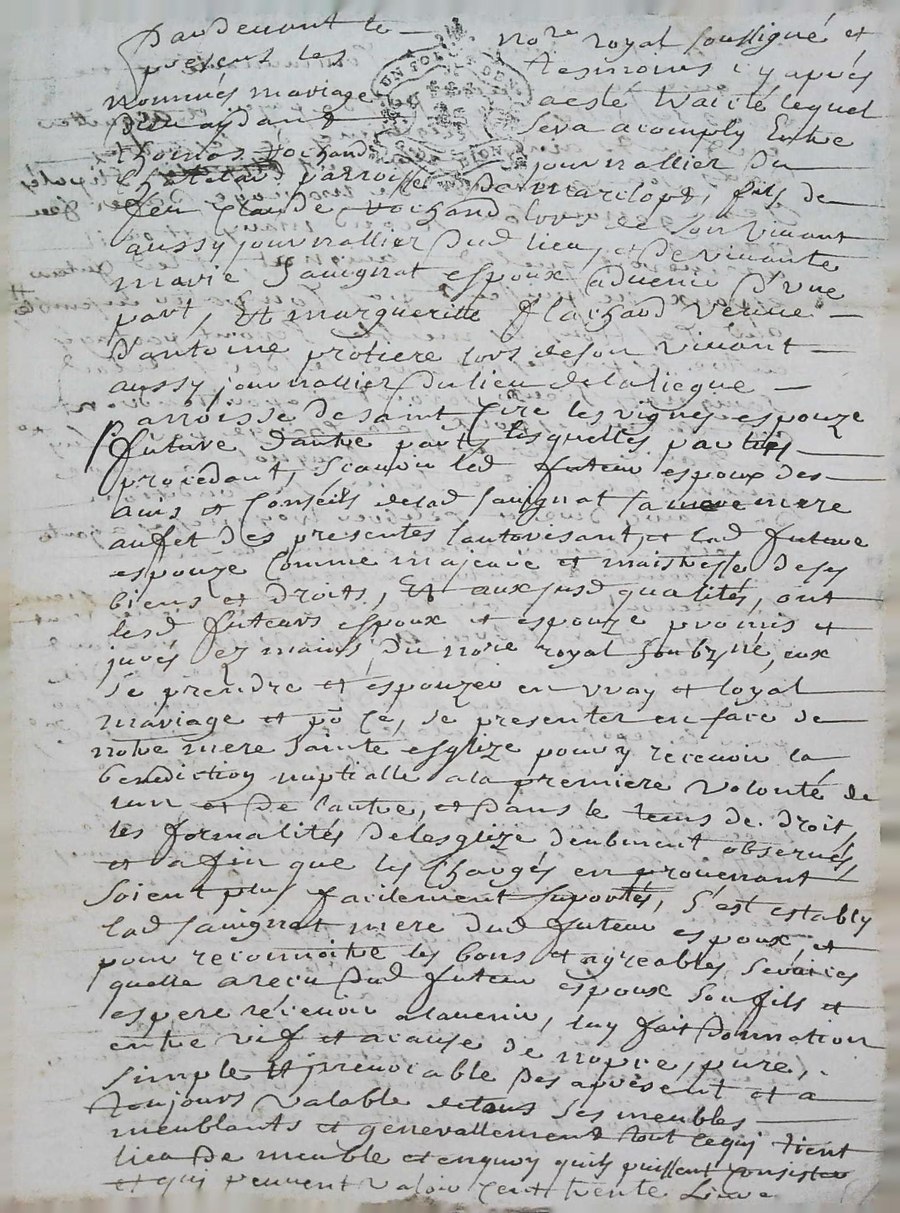 Pardevant le nore royal soussigné et
présens les tesmoins cy après
nommés mariage a esté traicté lequel
sera acomply Entre
Thomas Vochand journallier du
parroisse de marilopt, fils de
feu Claude Vochand lors de son vivant
aussy journallier dud lieu, et de vivante
marie Sauignat espoux aduenir d'vne
part, Et margueritte flachand verve
d'antoine protiere lors de son vivant
aussy journallier du lieu de la liegue
parroisse de saint Cire les vignes espouze
future dautre part, lesquelles parties
procedant, scauoir led futeur espoux des
auis et Conseils de lad sauignat sa mere
au fet des presentes lautorisant, et lad future
espouze comme majeure et maistresse de ses
biens et droits, Et aux susd qualités, ont
lesd futeurs espoux et espouze promis et
jurés ez mains du nore royal soubzné, eux
se prendre et espouzer en vray et loyal
mariage et po ce, se presenter en face de
notre mere sainte esglize pour y recevoir la
benediction nuptialle a la premiere volonté de
lun et de lautre, et dans le tems de droit,
les formalités de lesglize deubment observés,
et afin que les charges en prouenant
soient plus facilement suportés, s'est establÿ
lad sauignat mere dud futeur espoux, et
pour reconnoitre les bons et agreables seruices
quelle a recu dud futeur espoux son fils et
espere récevoir a lauenir, luy fait donnation
entre vif et a cause de nopce, pure,
simple et jrreuocable des apresent et a
toujours valable de tous ses meubles
meublants et generallement tout ce qui tient
lieu de meuble et en quoy quils puissent consister
et qui peuvent valoir cent trente Livre